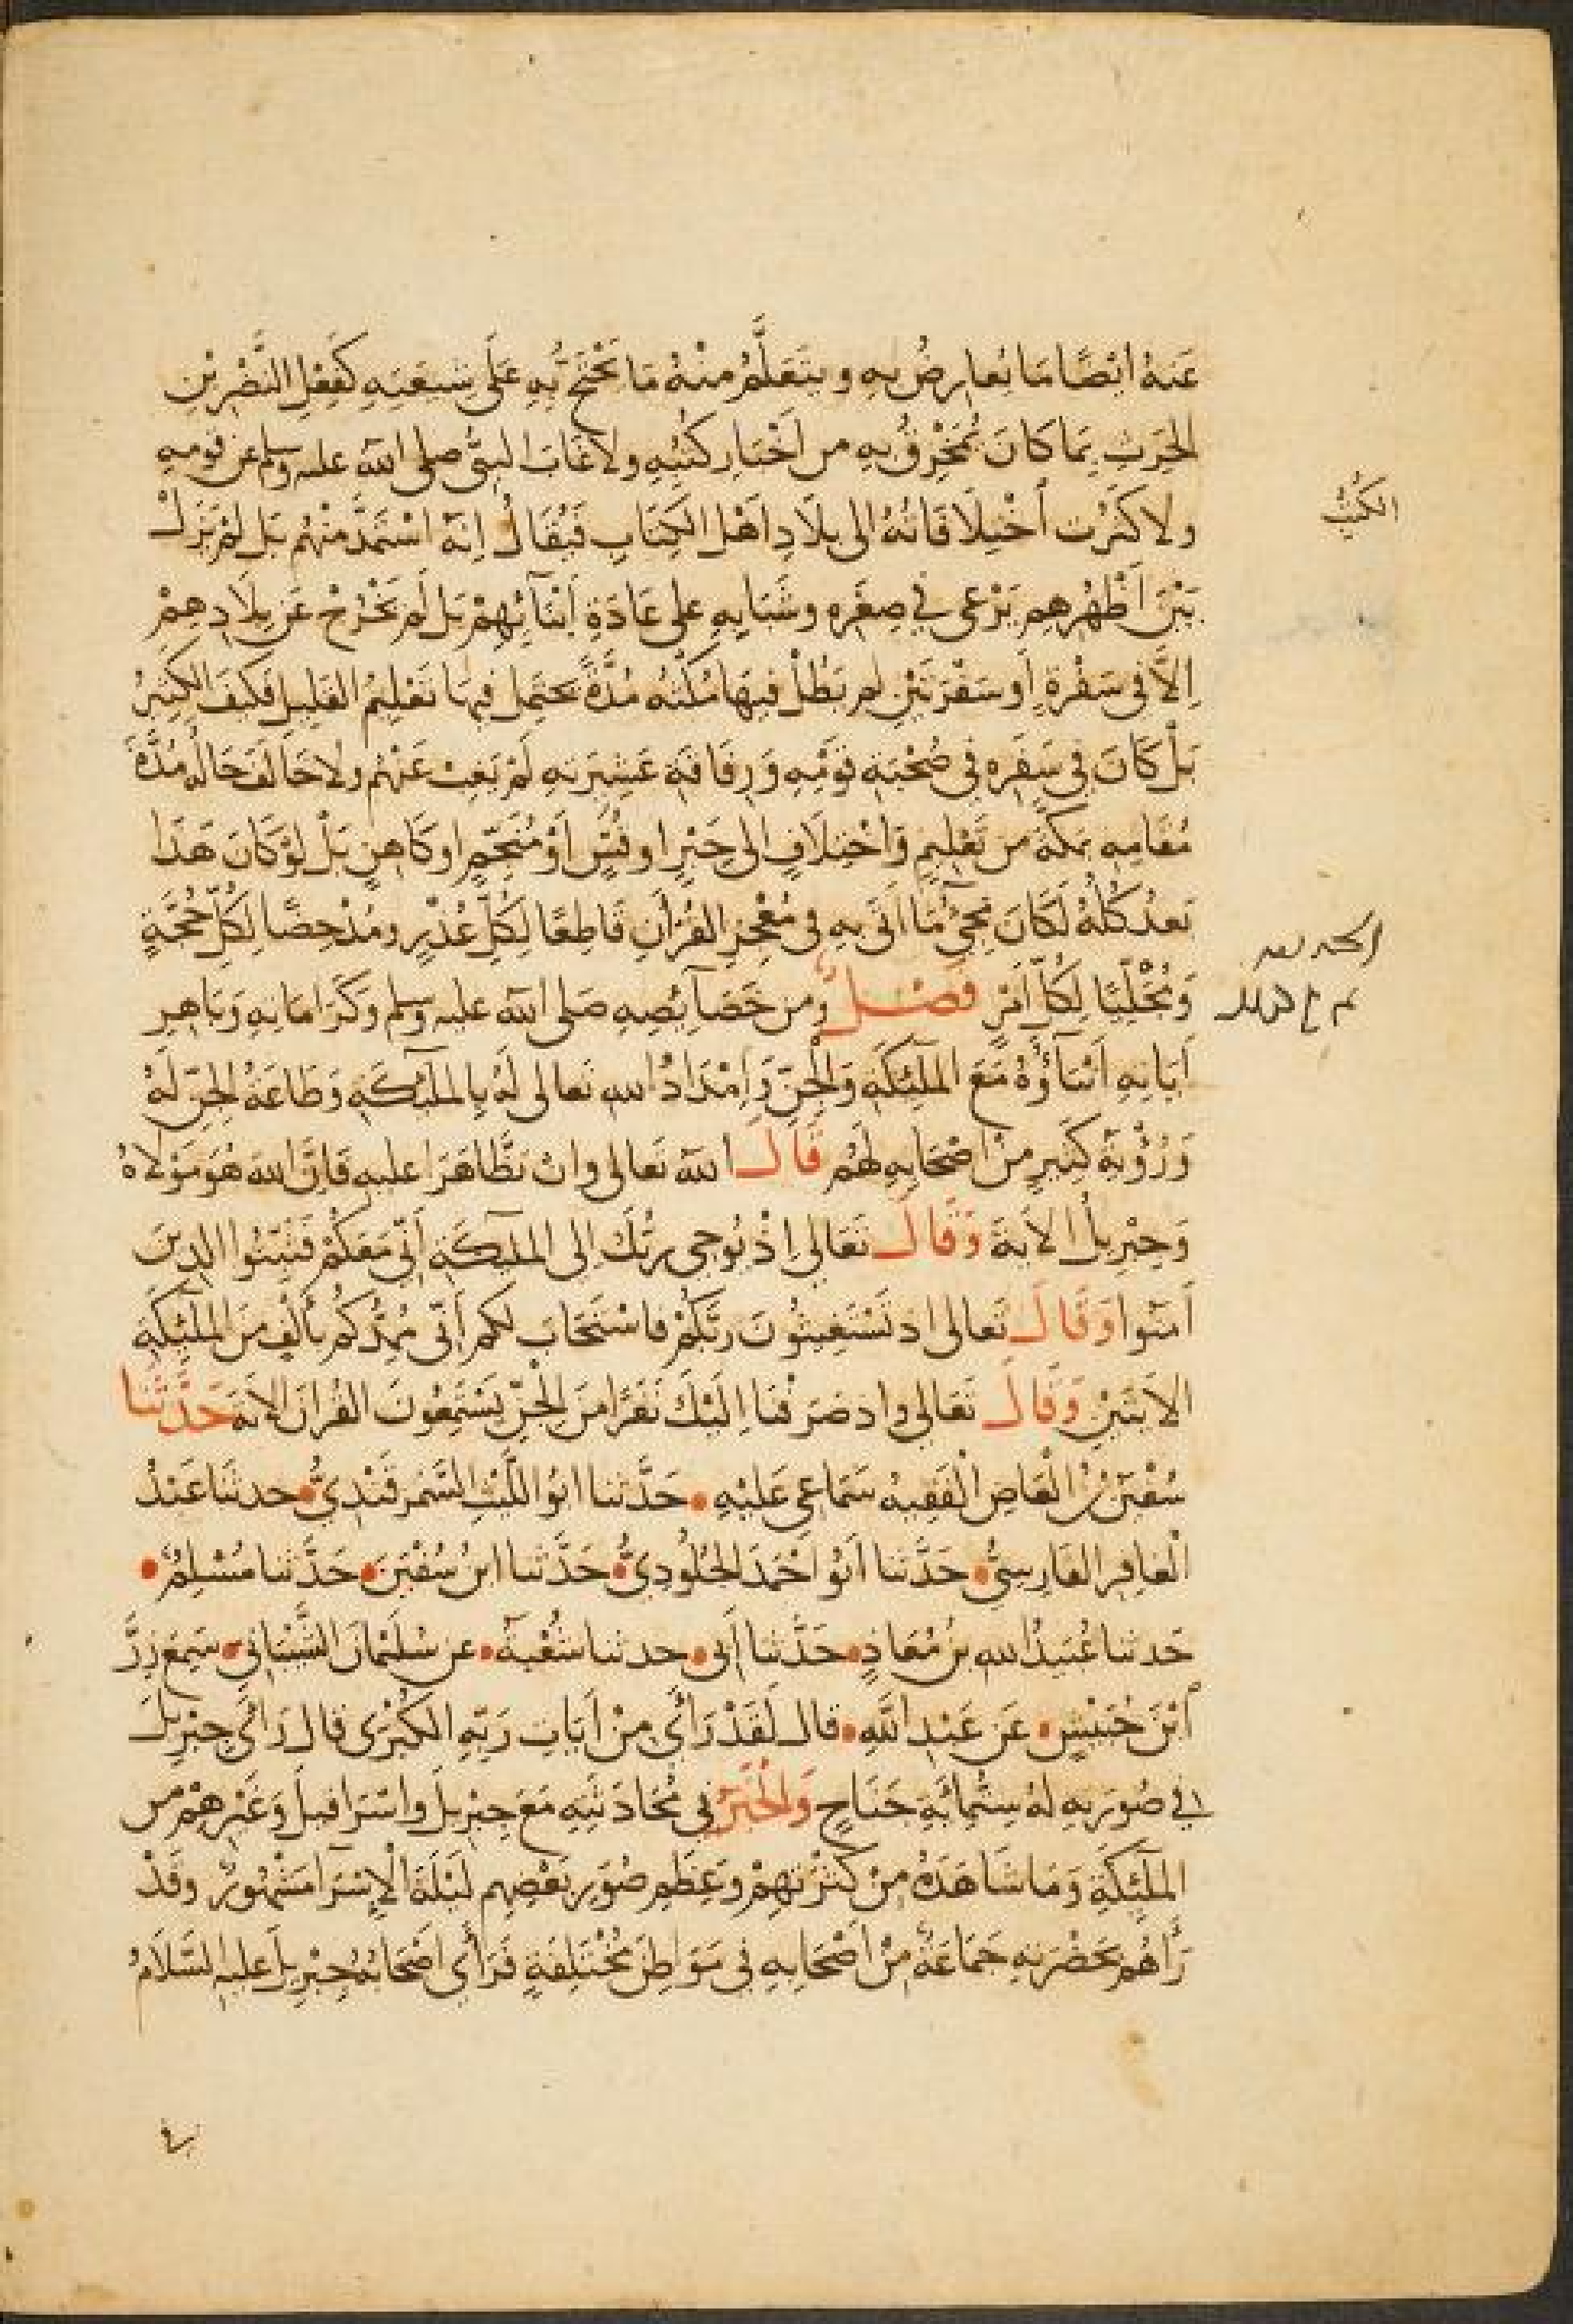 عَنهُ ايْضًا مَا يُعارِضُ بِهِ ويتَعَلَّمُ مِنْهُ مَا يَحْتَجُّ بِهِ عَلَى شِيعَتِهِ كَفِعْلِ النَّضْرِ بْنِ
الحَرثِ بمَا كانَ يُمَخْرِقُ بِهِ من اَخْبَارِ كُتُبِهِ ولا غَابَ النبيُّ صلى الله عليه وسلم عن قومِهِ
ولا كَثُرَت اُخْتِلَافَاتُهُ الى بِلَادِ اَهْلِ الكِتَابِ فَيُقَالُ اِنهُ اسْتَمَدَّ مِنْهُم بَل لَمْ يَزَلْ
بَيْنَ اَظْهُرِهِم يَرْعَى في صِغَرِهِ وشَبَابِهِ على عَادَةِ اَبْنَآئِهِمْ بَل لَم يَخْرُجْ عَن بِلَادِهِمْ
اِلَّا في سَفْرَةٍ اَو سَفْرَتَيْنِ لم يَطُلْ فيهَا مُكْثُه مُدَّةً يحتَمِل فيهَا تَعْلِيمُ القَلِيلِ فَكَيفَ الكَثِيرُ
بَلْ كَانَ في سَفَرِهِ في صُحْبَةِ قَوْمِهِ وَرِفَاقَةِ عَشِيرَتِهِ لَمْ يَغِبْ عَنْهُم ولا خَالَفَ حَالُه مُدَّةَ
مُقَامِهِ بمَكةَ مِن تَعْلِيمٍ وَاخْتِلَافٍ الى حَبْرٍ او قُسٍّ اَوْ مُنَجِّمٍ او كَاهِنٍ بَلْ لوْ كَانَ هَذَا
بَعدُ كُلُّهُ لَكَانَ مَجِيُ مَا اَتَى بِهِ في مُعْجِزِ القُرْآنِ قَاطِعًا لِكُلِّ عُذْرٍ ومُدْحِضًا لِكُلِّ حُجَّةٍ
وَمُجَلِّيًا لِكُلِّ اَمْرٍ فَصْلٌ ومن خَصَآئِصِهِ صَلى الله عليه وسلم وَكَرَامَاتِهِ وَبَاهِرِ
اَيَاتِهِ اَنْبَآؤُهُ مَعَ المَلٰئِكَةِ وَالجِنّ وَاِمْدَادُ الله تَعالى لَهُ بِالمَلٰئِكَةِ وَطَاعَةُ الجِنّ لَهُ
وَرُؤْيَةُ كَثِيرٍ مِنْ اصْحَابِهِ لَهُم قَالَ الله تَعالى وانْ تظَّاهَرَا عليهِ فَاِنَّ الله هُوَ مَوْلاهُ
وَجِبْرِيلُ الايَةَ وَقَالَ تَعَالى اِذْ يُوحِي رَبُّكَ اِلى المَلٰئكَةِ اَنّي مَعَكُمْ فَثَبِّتُوا الذِينَ
اَمَنُوا وَقَالَ تَعالى اذ تَسْتَغِيثُونَ رَبَّكُمْ فاسْتَجَابَ لكم اَنّي مُمِدُّكُم بأَلْفٍ مِنَ المَلٰئِكَةِ
الايَتَيْنِ وَقَالَ تَعَالى واذ صَرَفْنَا اِلَيْكَ نَفَرًا مِنَ الجِنّ يَسْتَمِعُونَ القُرانَ الايَةَ حَدَّثَنا
سُفْيٰنُ بْنُ الْعَاصِ الفَقِيهُ سَمَاعِي عَلَيْهِ حَدَّثنا ابُو اللَّيْثِ السَّمَرقَنْدِيُّ حدثنَا عَبْدُ
الْغافِرِ الفَارِسِيُّ حَدَّثنا اَبُو اَحْمَدَ الجُلُودِيُّ حَدَّثنا ابنُ سُفْيٰنَ حَدَّثنا مُسْلِمٌ
حَدثنا عُبَيدُ الله بنُ مُعَاذٍ حَدَّثنا اَبي حدثنا شُعْبَةُ عن سُلَيْمانَ الشَّيْبَاني سَمِعَ زِرَّ
اُبْنَ حُبَيْشٍ عَن عَبْدِ اللَّهِ قالَ لَقَدْ رَاَى مِنْ اَيَاتِ رَبِّهِ الكُبْرَى قالَ رَاَى جِبْرِيلَ
في صُورَتِهِ لهُ سِتُّمائَةِ جَنَاحٍ وَالْخَبَرُ في مُحَادَثَتِهِ مَعَ جِبْرِيلَ واسْرَافِيلَ وَغَيْرِهِمْ من
المَلٰئِكَةِ وَمَا شَاهَدَهُ مِنْ كَثْرَتِهِمْ وَعِظَمِ صُوَرِ بَعْضِهِم لَيْلَةَ الْاِسْرَا مَشْهُورٌ وقَدْ
رَاٰهُم بحَضْرَتِهِ جَمَاعَةٌ مِنْ اَصْحَابِهِ في مَوَاطِنَ مُخْتَلِفَةٍ فَرَاَى اَصْحَابُهُ جِبْرِيلَ عليهِ السَّلامُ
الكُتُبِ